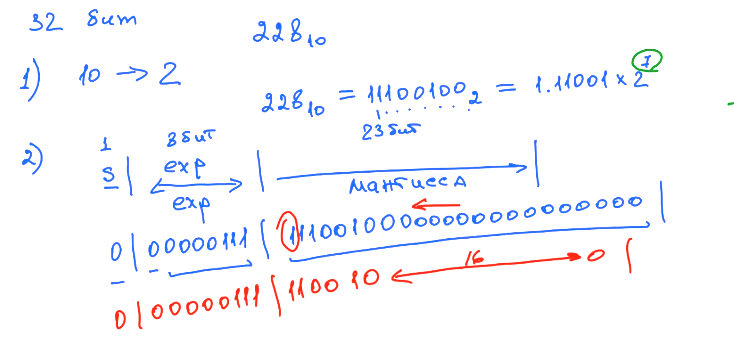 32 бит
228₁₀
1) 10 → 2
228₁₀ = 11100100₂ = 1.11001 × 2⁷
23 бит
2) 1 8 бит
S | exp | мантисса |
exp
0 | 00000111 | 11100100000000000000000 |
0 | 00000111 | 110010 ← 16 → 0 |